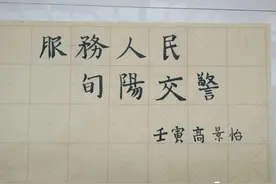 服務人民
旬陽交警
壬寅高景怡